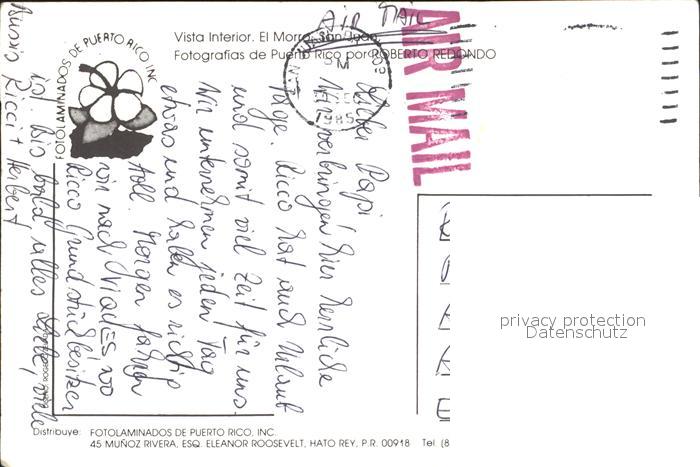 AIR MAIL
Vista Interior. El Morro, San Juan.
Fotografías de Puerto Rico por ROBERTO REDONDO
FOTOLAMINADOS DE PUERTO RICO INC.
AIR MAIL
Lieber Papi
Wir verbringen hier herrliche
Tage. Ricco hat auch Urlaub
und somit viel Zeit für uns.
Wir unternehmen jeden Tag
etwas und haben es richtig
toll. Morgen fahren
wir nach VIQUES wo
Ricco Grundstückbesitzer
ist. Bis bald alles Liebe, viele
Bussis Ricci + Herbert
privacy protection
Datenschutz
Distribuye: FOTOLAMINADOS DE PUERTO RICO, INC.
45 MUÑOZ RIVERA, ESQ. ELEANOR ROOSEVELT, HATO REY, P.R. 00918 Tel. (8